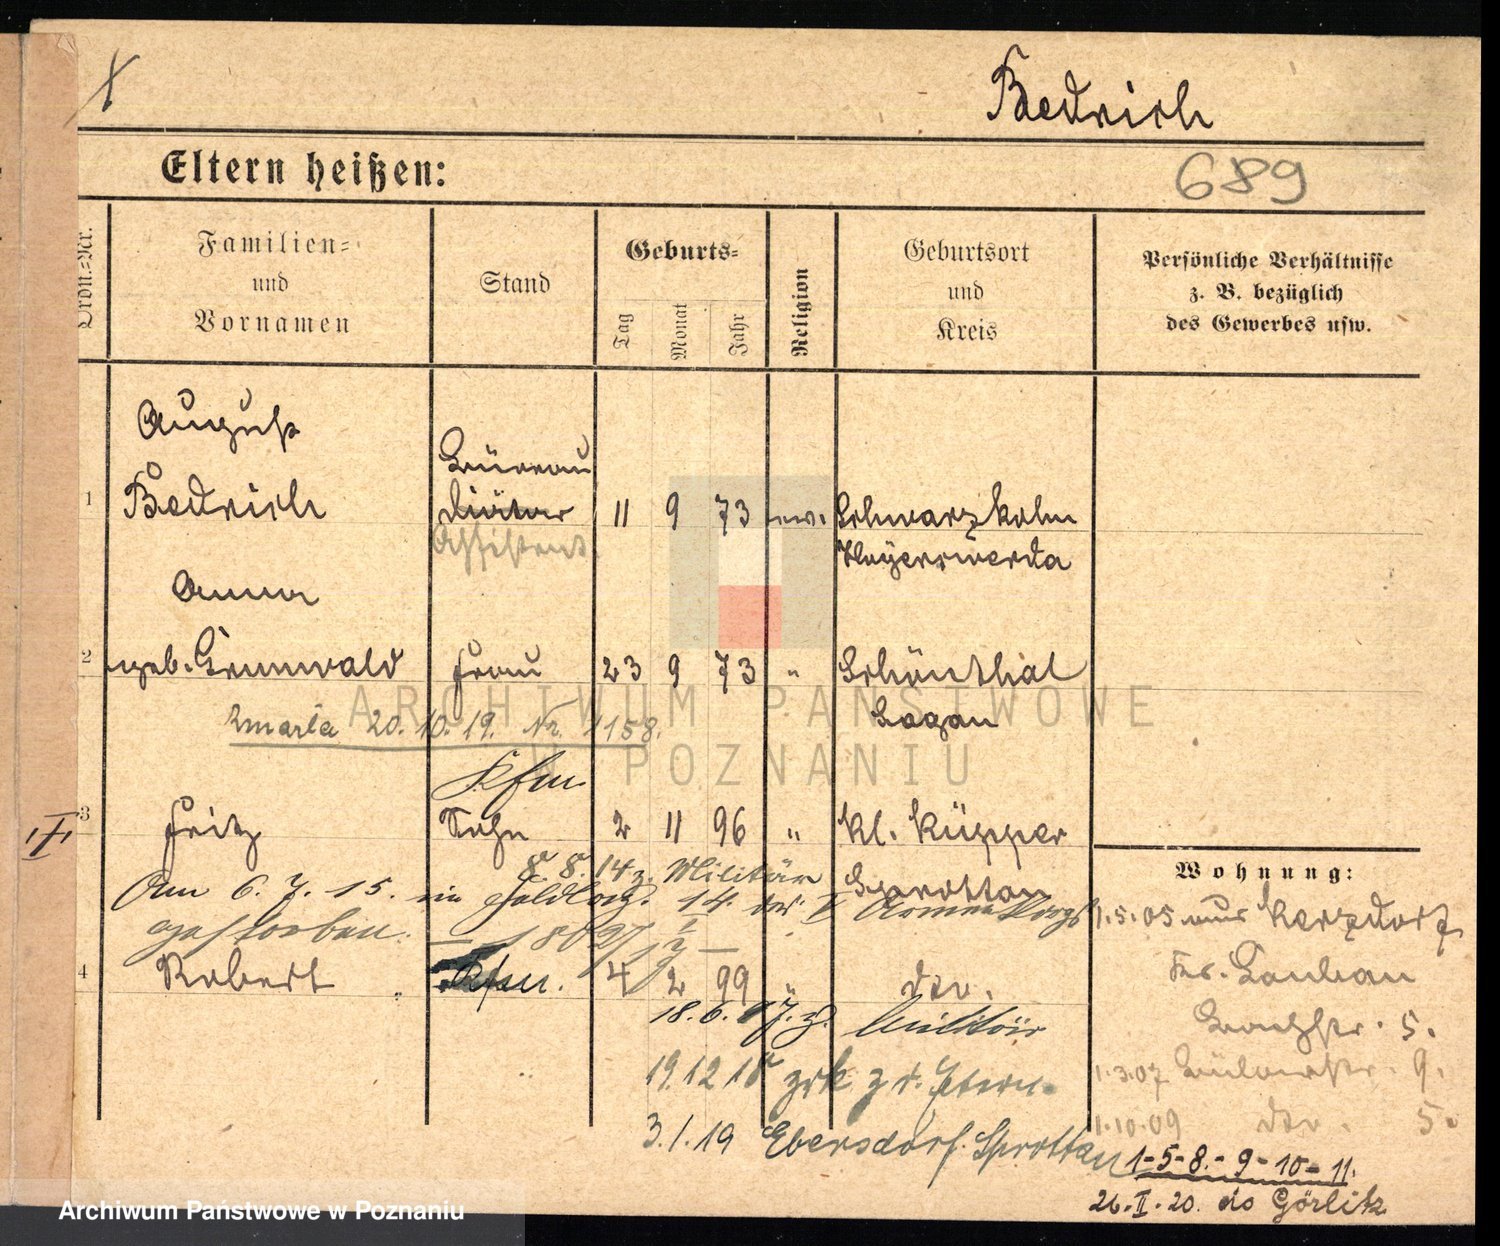 Bedrich
Eltern heißen:
689
Ordn.=Nr.
Familien=
und
Vornamen
Stand
Geburts=
Tag
Monat
Jahr
Religion
Geburtsort
und
Kreis
Persönliche Verhältnisse
z. B. bezüglich
des Gewerbes usw.
August
Büreau
1 Bedrich Diätar 11 9 73 ev. Schwarzkolm
Assistent Hoyerswerda
Anna
2 geb. Grunwald Frau 23 9 73 " Schönthal
Sagan
Zmarła 20.10.19. Nr. 1158.
Kfm
3 Fritz Sohn 2 11 96 " Kl. Küpper
8. 8. 14 z. Militär
Sprottau
Am 6. 7. 15. im Feldlaz. 14 des V Armee
gestorben.
4 Robert Kfm. 4 2 99 " do.
18.6.17. z. Militär
19.12 18 zrk z d. Eltern
3.1.19 Ebersdorf Sprottau
Wohnung:
1.5.05 aus Kerzdorf
Kr. Lauban
5.
1.3.07 9.
1.10.09 do. 5.
1-5-8.-9-10-11.
26.II.20. do Görlitz
ARCHIWUM PAŃSTWOWE
W POZNANIU
Archiwum Państwowe w Poznaniu